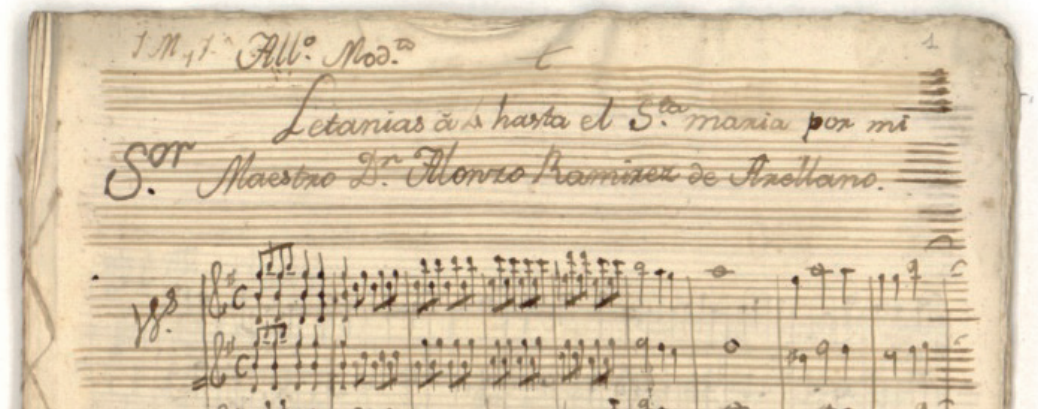 J M, J. All.º Mod.to 1
Letanias â 4 hasta el S.ta maria por mi
S.or Maestro D.n Alonzo Ramirez de Arellano.